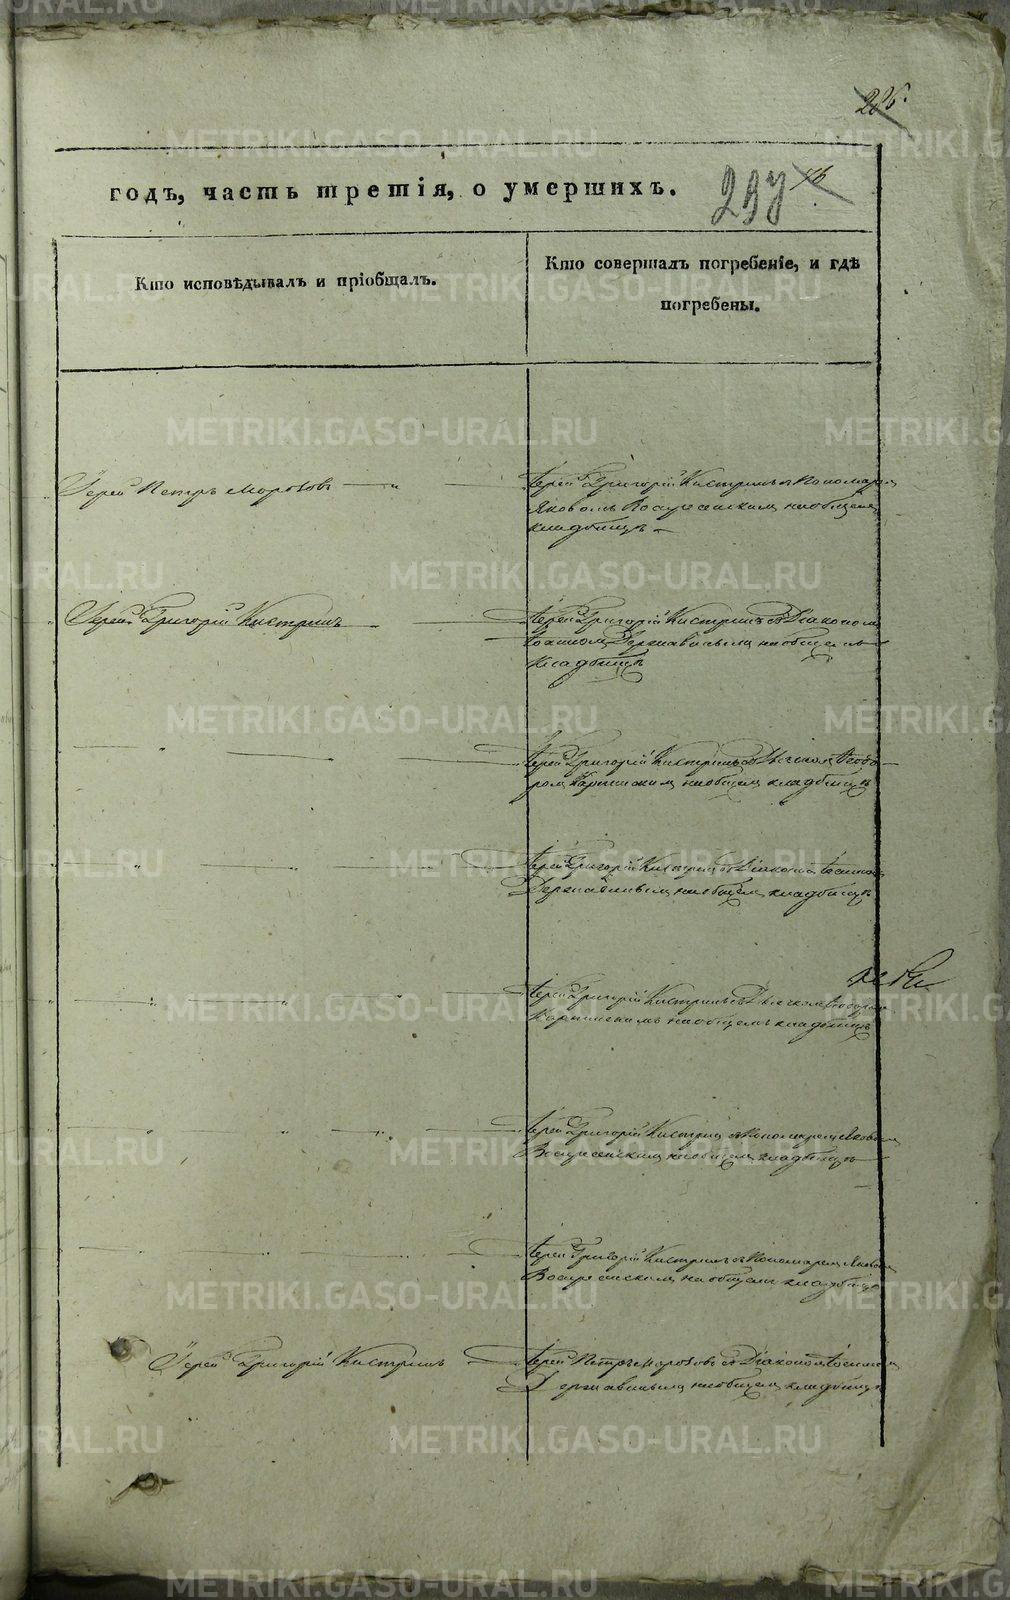 286.
годъ, часть третія, о умершихъ.
237
Кто исповѣдывалъ и пріобщалъ.
Кто совершалъ погребеніе, и гдѣ
погребены.
Іерей Петръ Морозовъ
Іерей Григорій Кистринъ съ Пономаремъ
Яковомъ Воскресенскимъ на общемъ
кладбищѣ
Іерей Григорій Кистринъ
Іерей Григорій Кистринъ съ Діакономъ
Іоанномъ Державинымъ на общемъ
кладбищѣ
Іерей Григорій Кистринъ съ Дьячкомъ Ѳеодо-
ромъ на общемъ кладбищѣ
Іерей Григорій Кистринъ съ Діакономъ Іоанномъ
Державинымъ на общемъ кладбищѣ
Іерей Григорій Кистринъ съ Дьячкомъ Ѳеодоромъ
на общемъ кладбищѣ
Іерей Григорій Кистринъ съ Пономаремъ Яковомъ
Воскресенскимъ на общемъ кладбищѣ
Іерей Григорій Кистринъ съ Пономаремъ Яковомъ
Воскресенскимъ на общемъ кладбищѣ
Іерей Григорій Кистринъ
Іерей Петръ Морозовъ съ Діакономъ Іоанномъ
Державинымъ на общемъ кладбищѣ
METRIKI.GASO-URAL.RU